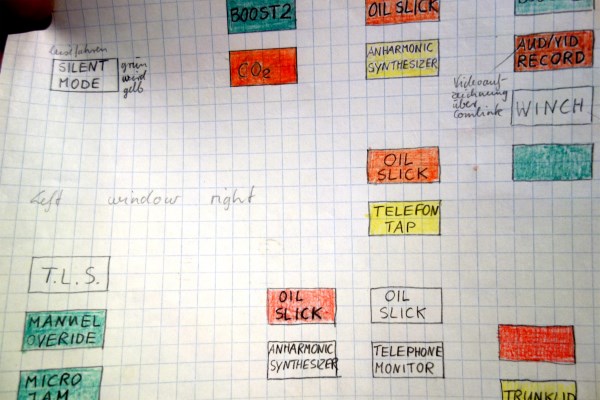 BOOST2
OIL SLICK
AUD/VID
RECORD
SILENT
MODE
grün
wird
gelb
CO2
ANHARMONIC
SYNTHESIZER
Videoauf-
zeichnung
über
Comlink
WINCH
OIL
SLICK
TELEFON
TAP
left window right
T.L.S.
MANUEL
OVERIDE
OIL
SLICK
OIL
SLICK
ANHARMONIC
SYNTHESIZER
TELEPHONE
MONITOR
MICRO
JAM
TRUNKLID